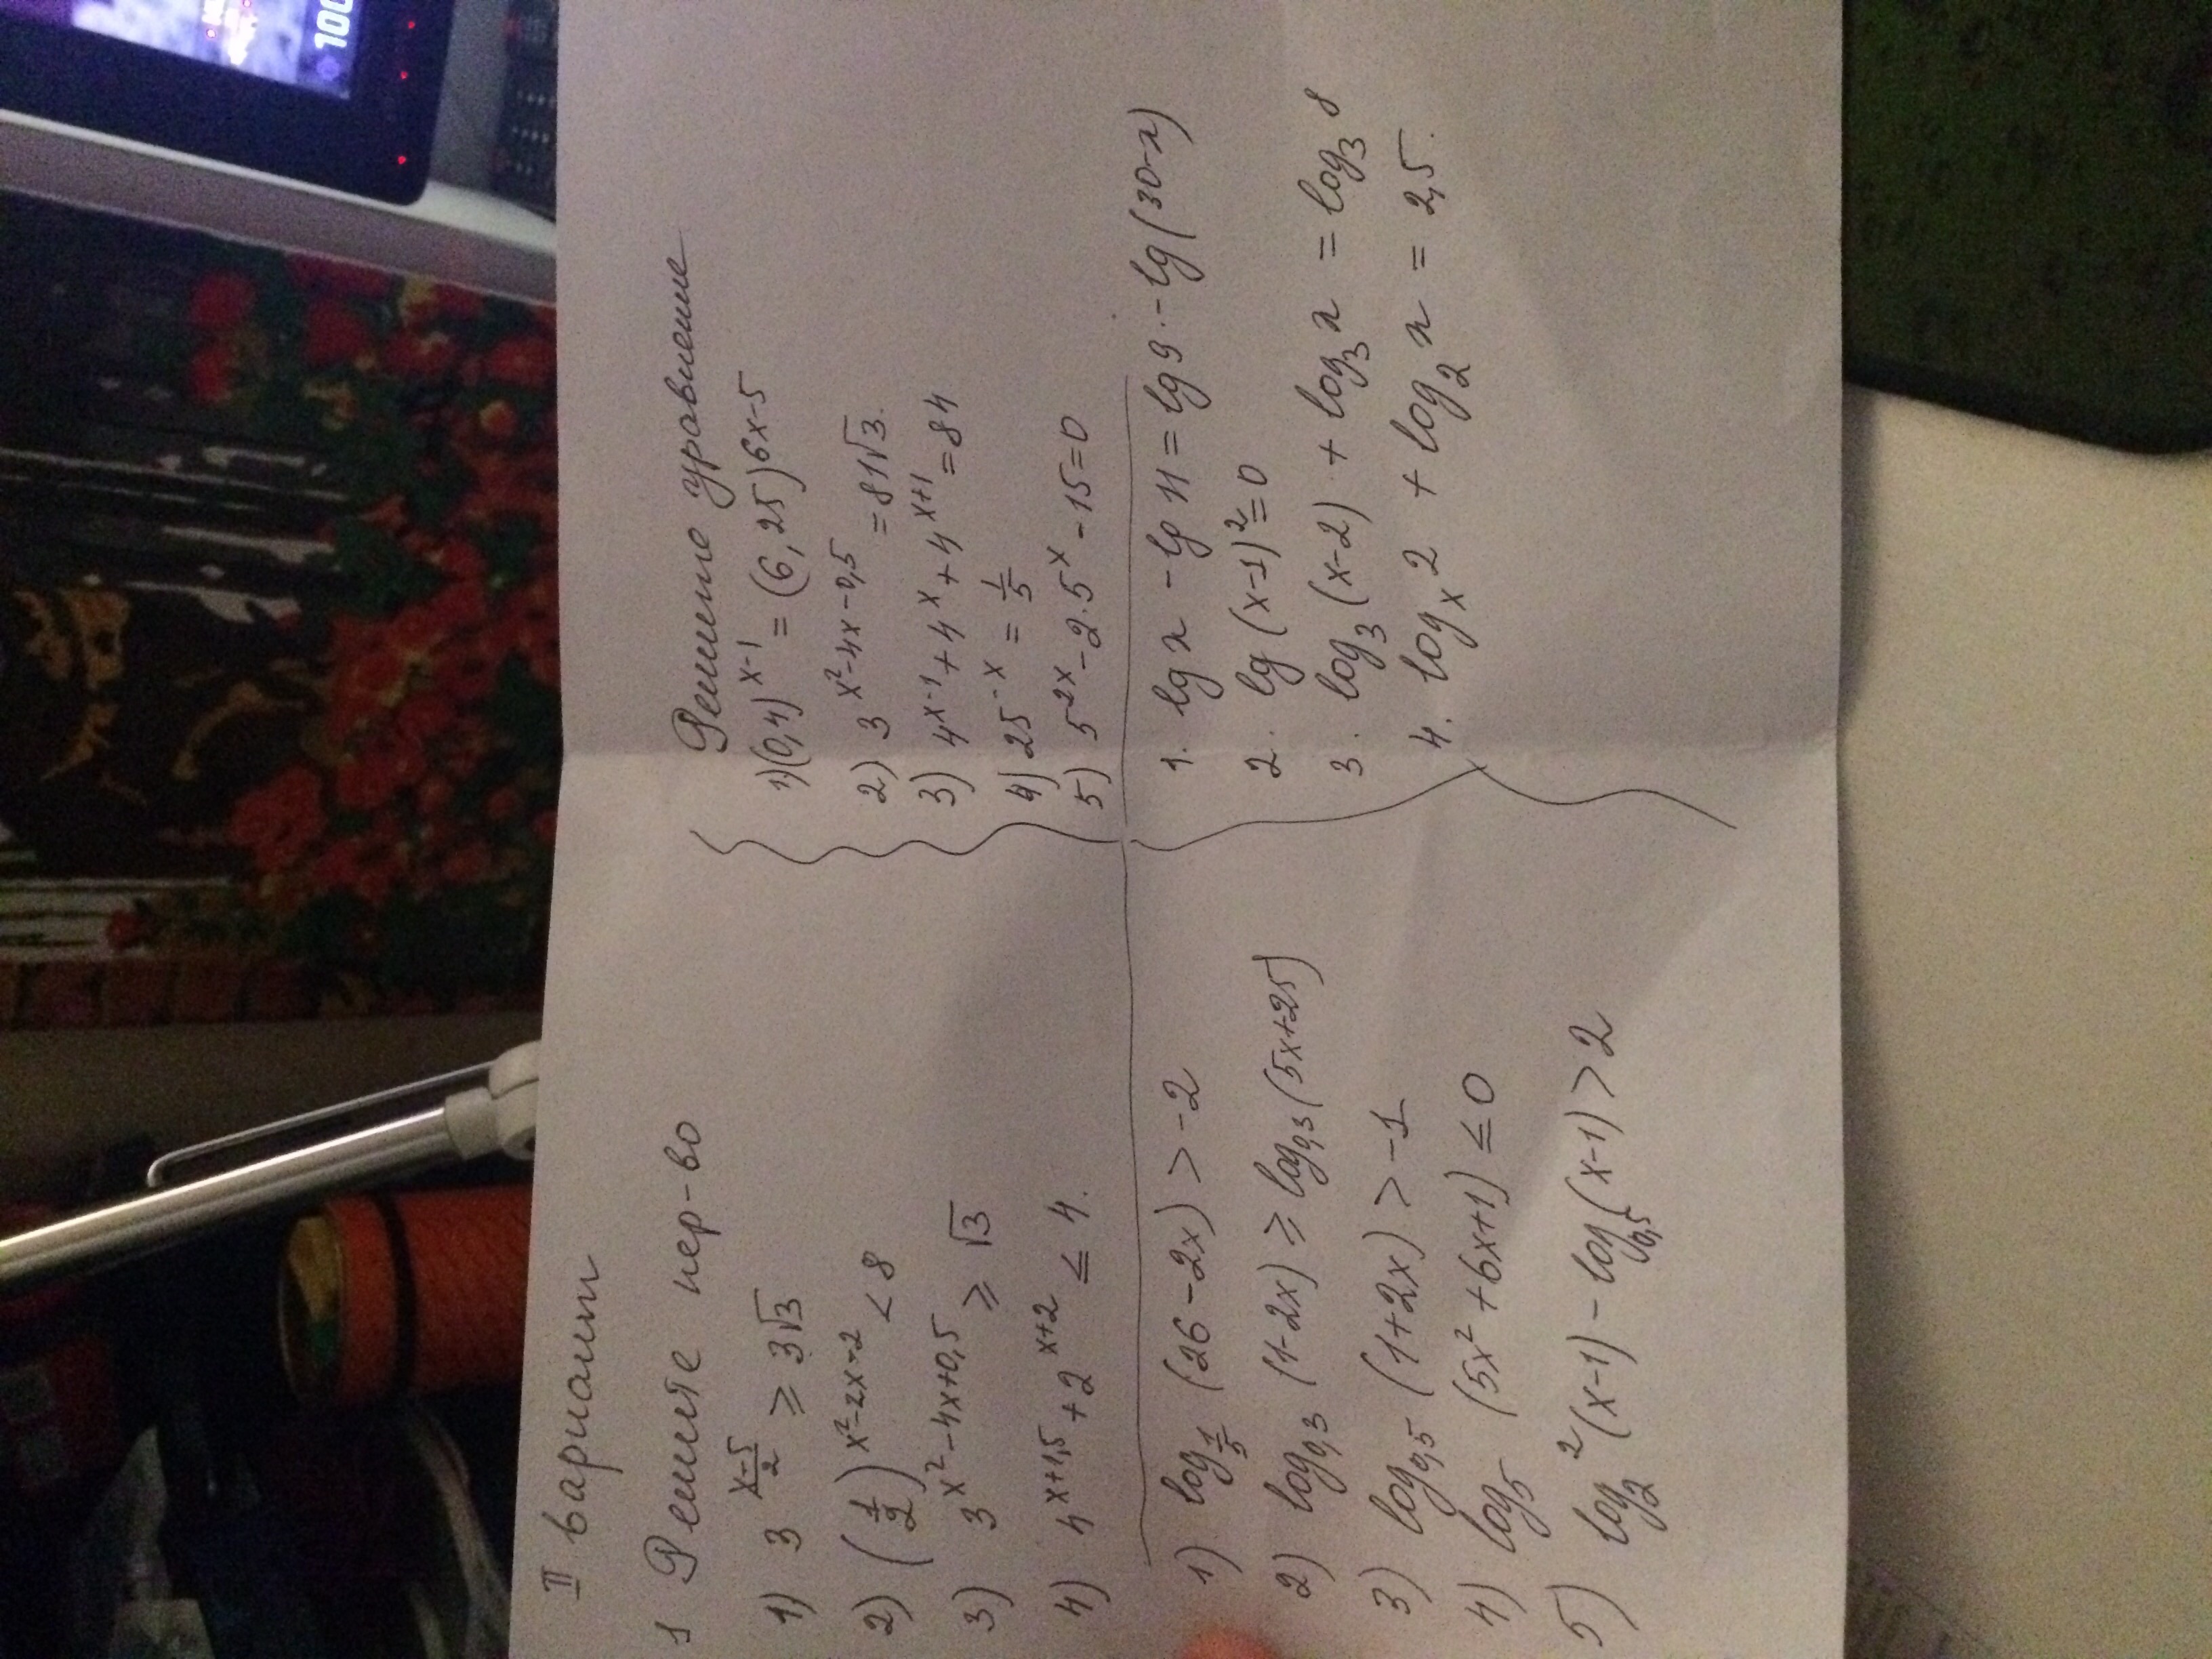 II вариант
1 Решите нер-во
1) 3^{\frac{x-5}{2}} ≥ 3√3
2) (\frac{1}{2})^{x²-2x-2} < 8
3) 3^{x²-4x+0,5} ≥ √3
4) 4^{x+1,5} + 2^{x+2} ≤ 4.
1) log_{\frac{1}{5}} (26-2x) > -2
2) log_{0,3} (1-2x) ≥ log_{0,3} (5x+25)
3) log_{0,5} (1+2x) > -1
4) log_5 (5x²+6x+1) ≤ 0
5) log_2² (x-1) - log_{0,5} (x-1) > 2
Решите уравнение
1) (0,4)^{x-1} = (6,25)^{6x-5}
2) 3^{x²-4x-0,5} = 81√3.
3) 4^{x-1} + 4^x + 4^{x+1} = 84
4) 25^{-x} = \frac{1}{5}
5) 5^{2x} - 2·5^x - 15 = 0
1. lg x - lg 11 = lg 9 - lg (30-x)
2. lg (x-1)² = 0
3. log_3 (x-2) + log_3 x = log_3 8
4. log_x 2 + log_2 x = 2,5.
100